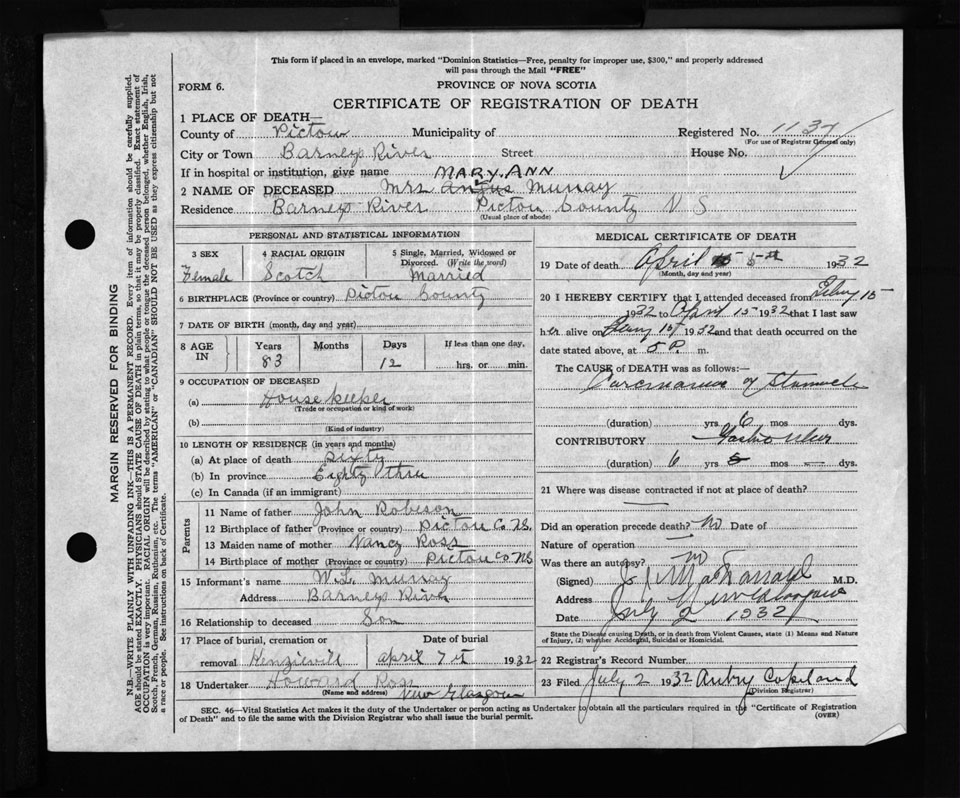 This form if placed in an envelope, marked "Dominion Statistics—Free, penalty for improper use, $300," and properly addressed
will pass through the Mail "FREE"
FORM 6.
PROVINCE OF NOVA SCOTIA
CERTIFICATE OF REGISTRATION OF DEATH
1 PLACE OF DEATH—
County of Pictou Municipality of Registered No. 1137
(For use of Registrar General only)
City or Town Barneys River Street House No.
If in hospital or institution, give name MARY. ANN
2 NAME OF DECEASED Mrs Angus Murray
Residence Barneys River Pictou County N S
(Usual place of abode)
PERSONAL AND STATISTICAL INFORMATION
3 SEX 4 RACIAL ORIGIN 5 Single, Married, Widowed or
Divorced. (Write the word)
Female Scotch Married
6 BIRTHPLACE (Province or country) Pictou County
7 DATE OF BIRTH (month, day and year)
8 AGE IN Years Months Days If less than one day,
83 12 hrs. or min.
9 OCCUPATION OF DECEASED
(a) House keeper
(Trade or occupation or kind of work)
(b)
(Kind of industry)
10 LENGTH OF RESIDENCE (in years and months)
(a) At place of death Sixty
(b) In province Eighty three
(c) In Canada (if an immigrant)
Parents
11 Name of father John Robeson
12 Birthplace of father (Province or country) Pictou Co NS
13 Maiden name of mother Nancy Ross
14 Birthplace of mother (Province or country) Pictou Co NS
15 Informant's name W.L. Murray
Address Barneys River
16 Relationship to deceased Son
17 Place of burial, cremation or Date of burial
removal Kenzieville april 7th 1932
18 Undertaker Howard Ross
(Name and address) New Glasgow
MEDICAL CERTIFICATE OF DEATH
19 Date of death April 5th 1932
(Month, day and year)
20 I HEREBY CERTIFY that I attended deceased from Feby 15
1932 to 1932 that I last saw
her alive on 1932 and that death occurred on
date stated above, at 5 P. m.
The CAUSE of DEATH was as follows:—
Carcinoma of Stomach
(duration) yrs 6 mos dys.
CONTRIBUTORY Gastric Ulcer
(duration) 6 yrs mos — dys.
21 Where was disease contracted if not at place of death?
—
Did an operation precede death? No Date of
Nature of operation —
Was there an autopsy? no
(Signed) M.D.
Address New Glasgow
Date July 2 1932
State the Disease causing Death, or in death from Violent Causes, state (1) Means and Nature
of Injury, (2) whether Accidental, Suicidal or Homicidal.
22 Registrar's Record Number
23 Filed July 2 1932 Aubry Copeland
(Division Registrar)
SEC. 46—Vital Statistics Act makes it the duty of the Undertaker or person acting as Undertaker to obtain all the particulars required in the "Certificate of Registration
of Death" and to file the same with the Division Registrar who shall issue the burial permit.
(OVER)
MARGIN RESERVED FOR BINDING
N.B.—WRITE PLAINLY WITH UNFADING INK—THIS IS A PERMANENT RECORD. Every item of information should be carefully supplied.
AGE should be stated EXACTLY. PHYSICIANS should STATE CAUSE OF DEATH in plain terms, so that it may be properly classified. Exact statement of
OCCUPATION is very important. RACIAL ORIGIN will be described by stating to what people or tongue the deceased person belonged, whether English, Irish,
Scotch, French, German, Russian, Ruthenian, etc. The terms "AMERICAN" or "CANADIAN" SHOULD NOT BE USED as they express citizenship but not
a race or people. See instructions on back of Certificate.